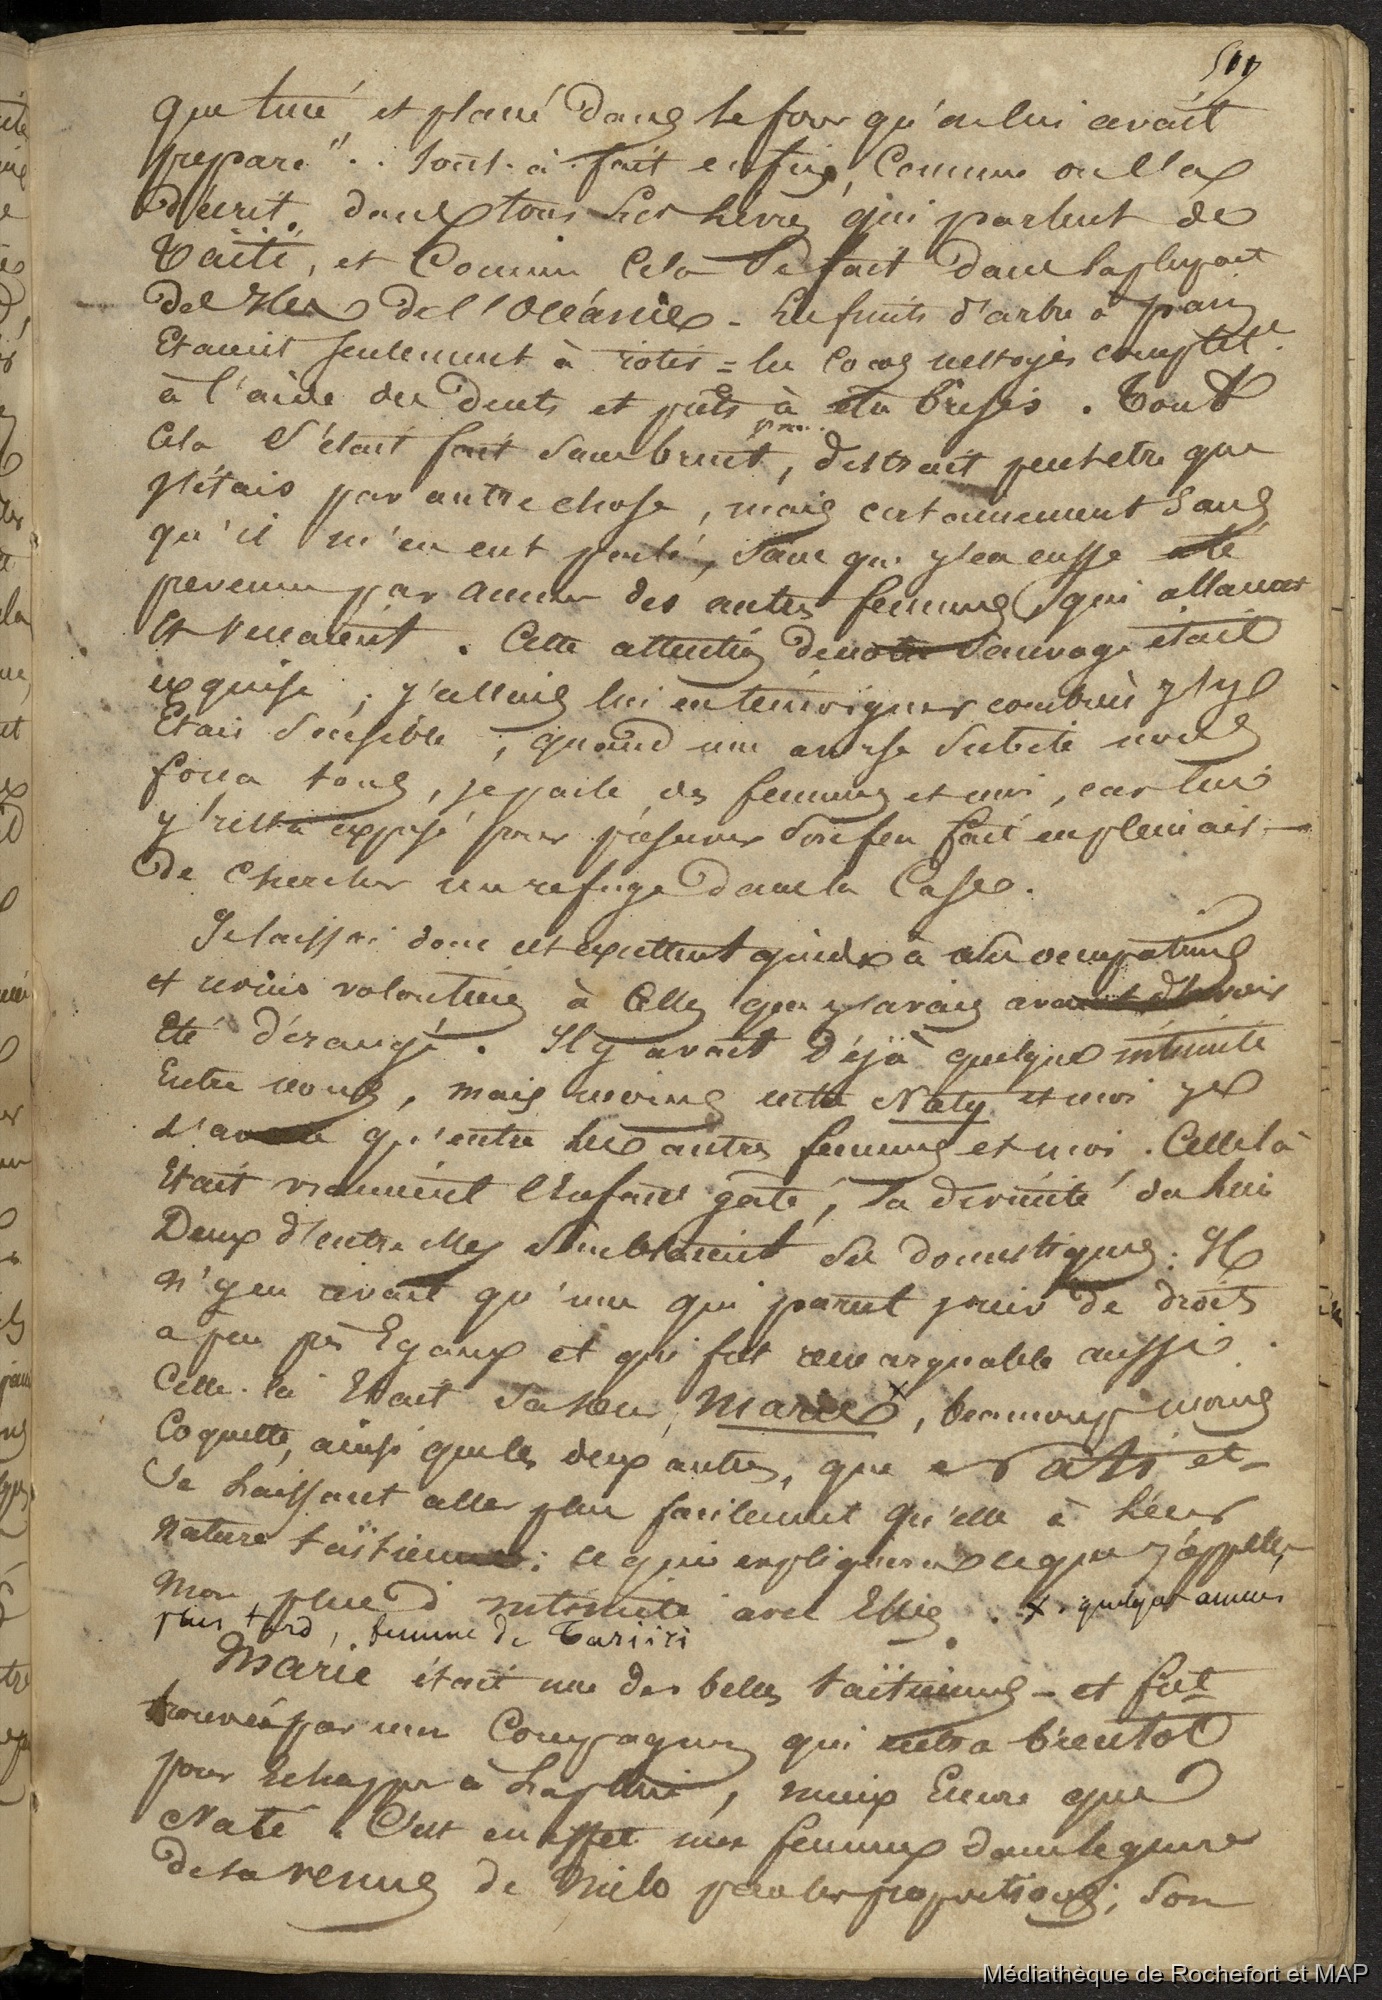 511
que tué, et placé dans le four qu'on lui avait
préparé".. tout-à-fait enfin, comme on l'a
décrit, dans tous les livres qui parlent de
Taïti, et comme cela se fait dans la plupart
des Iles de l'Océanie - les fruits d'arbre à pain
étaient seulement à rotir = les cocos nettoyés complett.
à l'aide des dents et prêts à être brisés. Tout
cela s'était fait sans bruit, distrait peut etre que
j'étais par autre chose, mais certainement sans
qu'il m'en eut parlé, sans que j'en eusse été
prevenu par aucune des autres femmes, qui allaient
et venaient. Cette attention de notre sauvage était
exquise; j'allais lui en témoigner combien j'y
étais sensible, quand une averse subite nous
força tous, je parle des femmes et moi, car lui
y resta exposé pour préserver son feu fait en plein air -
de chercher un refuge dans la case.
Je laissai donc cet excellent guide à ses occupations
et revins volontiers à celles que j'avais avant d'avoir
été dérangé. Il y avait déjà quelque intimité
entre nous, mais moins entre Naty et moi je
l'avoue qu'entre les autres femmes et moi. Celle là
était vraiment l'enfant gaté, la divinité du lieu
Deux d'entre elles semblaient ses domestiques. Il
n'y en avait qu'une qui parut jouir de droits
a peu près égaux et qui fut remarquable aussi.
Celle-là était sa sœur, Marie x, beaucoup moins
coquette, ainsi que les deux autres, que Nati et
se laissant aller plus facilement qu'elle à leur
nature taïtienne: ce qui expliquera ce que j'appelle
mon plus d'intimité avec elles. x. quelques années
plus tard, femme de Tariiri
Marie était une des belles taïtiennes - et fut
trouvée par un compagnon qui entra bientôt
pour échapper à la pluie, mieux encore que
Naté. C'est en effet une femme dans le genre
de la venus de Milo pour les proportions; son
Médiathèque de Rochefort et MAP